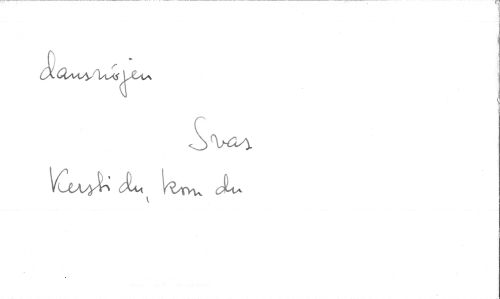 dansnöjen
Svas
Kersti du, kom du